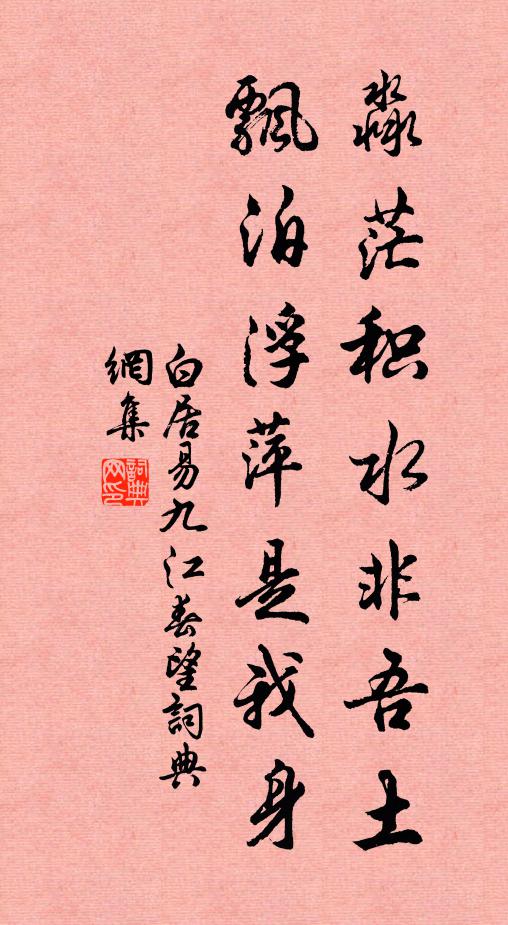 淼茫积水非吾土
飘泊浮萍是我身
白居易九江春望詞典
網集
詞典網印